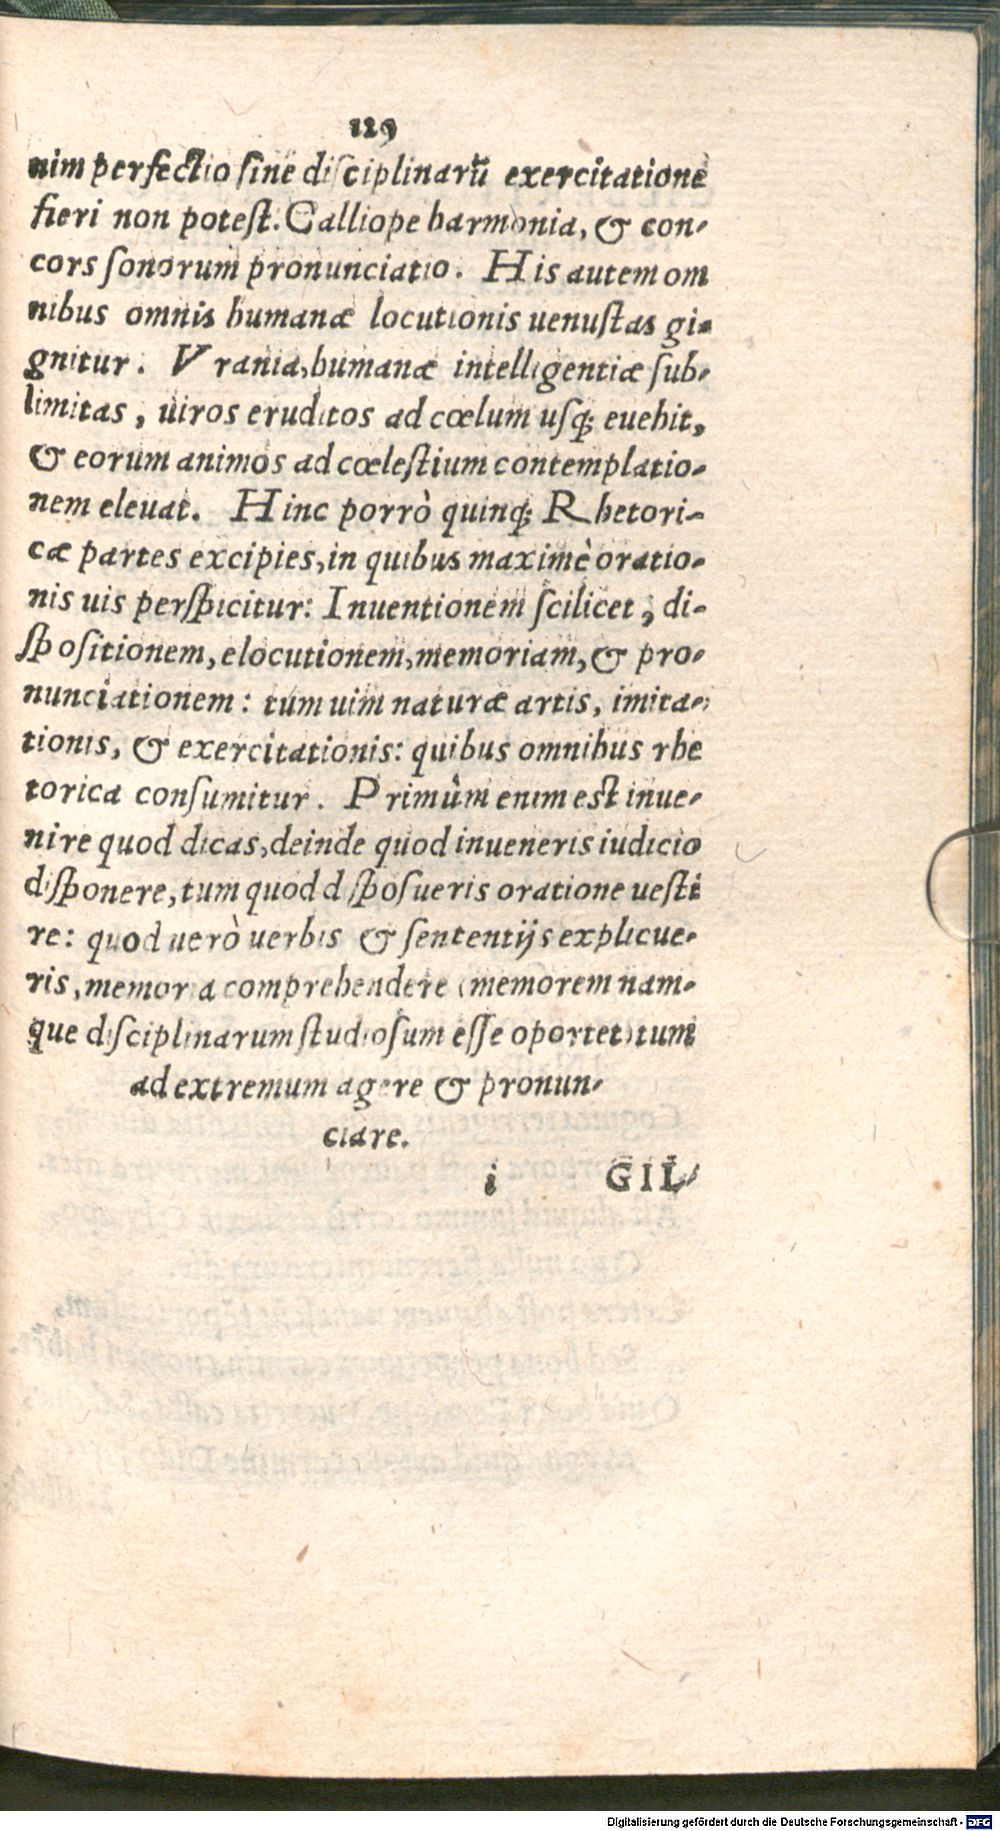 129
nim perfectio sine disciplinarū exercitatione
fieri non potest. Calliope harmonia, & con-
cors sonorum pronunciatio. His autem om
nibus omnis humanæ locutionis uenustas gi-
gnitur. Vrania, humanæ intelligentiæ sub-
limitas, uiros eruditos ad cœlum usq; euehit,
& eorum animos ad cœlestium contemplatio-
nem eleuat. Hinc porrò quinq; Rhetori-
cæ partes excipies, in quibus maximè oratio-
nis uis perspicitur: Inuentionem scilicet, di-
spositionem, elocutionem, memoriam, & pro-
nunciationem: tum uim naturæ artis, imita-
tionis, & exercitationis: quibus omnibus rhe
torica consumitur. Primùm enim est inue-
nire quod dicas, deinde quod inueneris iudicio
disponere, tum quod disposueris oratione uesti
re: quod uerò uerbis & sententijs explicue-
ris, memoria comprehendere (memorem nam-
que disciplinarum studiosum esse oportet) tum
ad extremum agere & pronun-
ciare.
i GIL-
Digitalisierung gefördert durch die Deutsche Forschungsgemeinschaft - DFG